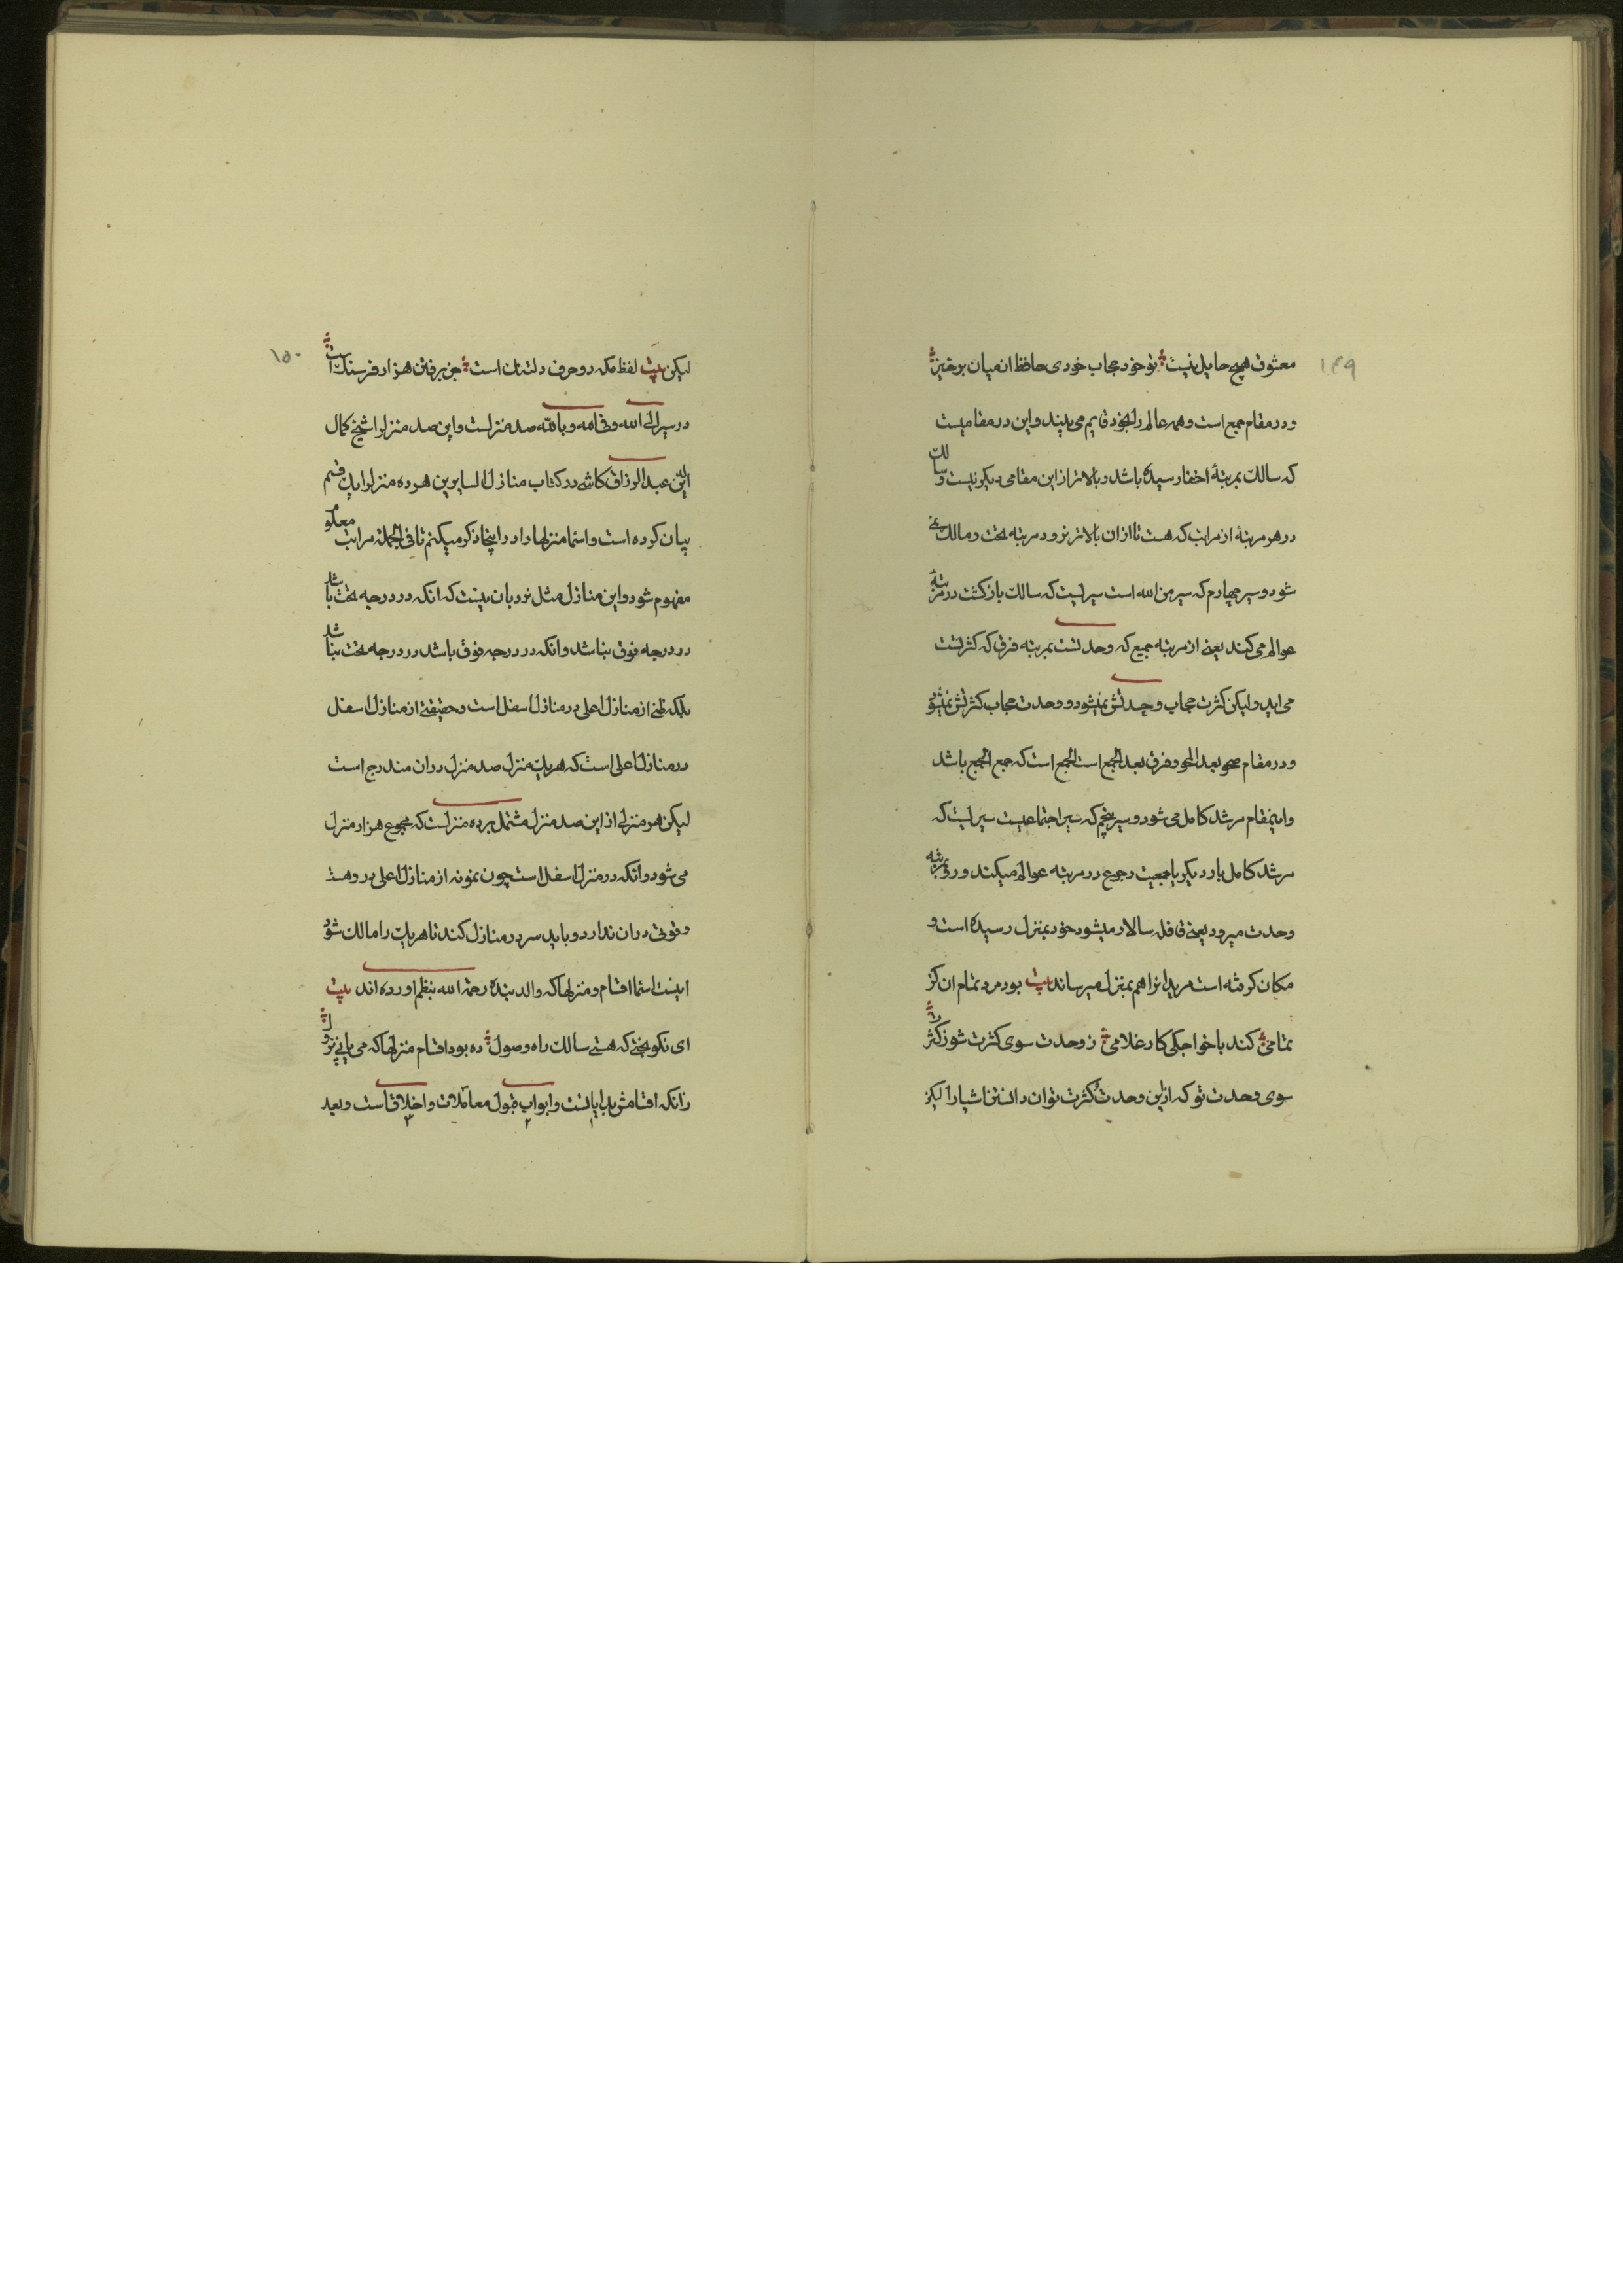 ۱۴۹
معشوق هیچ حایل نیست تو خود حجاب خودی حافظ از میان برخیز
و در مقام جمع است و همه عالم را بخود قایم می بیند و این در مقامیست
که سالک بمرتبهٔ اخفا رسیده باشد و بالاتر از این مقامی دیگر نیست و سالک
در هر مرتبهٔ از مراتب که هست تا از ان بالاتر نرود مرتبه تحت و مالک نمی
شود و سیر چهارم که سیر من الله است سیریست که سالک باز کشت در مرتبهٔ
عوالم می کند یعنی از مرتبه جمع که وحدتست بمرتبه فرق که کثرتست
می اید ولیکن کثرت حجاب وحدتش نمیشود و وحدت حجاب کثرتش نمیشود
و در مقام صحو بعد المحو و فرق بعد الجمع است که جمع الجمع باشد
و اینمقام مرشد کامل می شود و سیر پنجم که سیر اجتماعیست سیریست که
مرشد کامل بار دیگر با جمعیت رجوع در مرتبه عوالم میکند و رو بمرتبه
وحدت میرود یعنی قافله سالار میشود خود بمنزل رسیده است و
مکان کرفته است مریدانرا هم بمنزل میرساند بیت بود مرد تمام ان کز
تمامی کند با خواجکی کار غلامی ز وحدت سوی کثرت شو ز کثرت
سوی وحدت تو که ازین وحدت کثرت توان دانستن اشیا را لیکن
۱۵۰
لیکن بیت لفظ مکه دو حرف دلتنک است جز برفتن هزار فرسنک است
در سیر الی الله و فی الله و بالله صد منزلست و این صد منزل را شیخ کمال
الدین عبد الرزاق کاشی در کتاب منازل السایرین هر ده منزل را یک قسم
بیان کرده است و اسما منزلها را در اینجا ذکر میکنم تا فی الجمله مراتب معلوم
مفهوم شود و این منازل مثل نردبان نیست که انکه در درجه تحت باشد
در درجه فوق نباشد و انکه در درجه فوق باشد در درجه تحت نباشد
بلکه ظنی از منازل اعلی در منازل اسفل است و حقیقتی از منازل اسفل
در منازل اعلی است که هر یک منزل صد منزل در ان مندرج است
لیکن هر منزلی از این صد منزل مشتمل بر ده منزلست که مجموع هزار منزل
می شود و انکه در منزل اسفل است چون نمونه از منازل اعلی در و هست
و قوتی در ان ندارد و باید سر در منازل کند تا هر یک را مالک شود
اینست اسما اقسام و منزلها که والد بنده رحمة الله بنظم اورده اند بیت
ای نکو بختی که هستی سالک راه وصول ده بود اقسام منزلها که می یابی نزول
زانکه اقسامش بدایاتست و ابواب قبول معاملات و اخلاقست و بعد